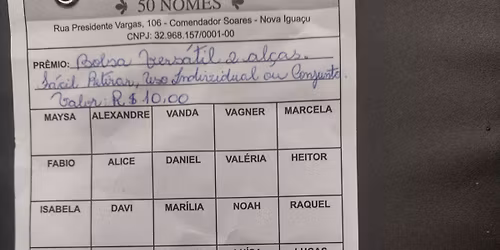 50 NOMES
Rua Presidente Vargas, 106 - Comendador Soares - Nova Iguaçu
CNPJ: 32.968.157/0001-00
PRÊMIO: Bolsa Versátil e alças.
fácil Retirar, uso Individual ou Conjunto.
Valor: R$ 10,00
MAYSA ALEXANDRE VANDA VAGNER MARCELA
FABIO ALICE DANIEL VALÉRIA HEITOR
ISABELA DAVI MARÍLIA NOAH RAQUEL